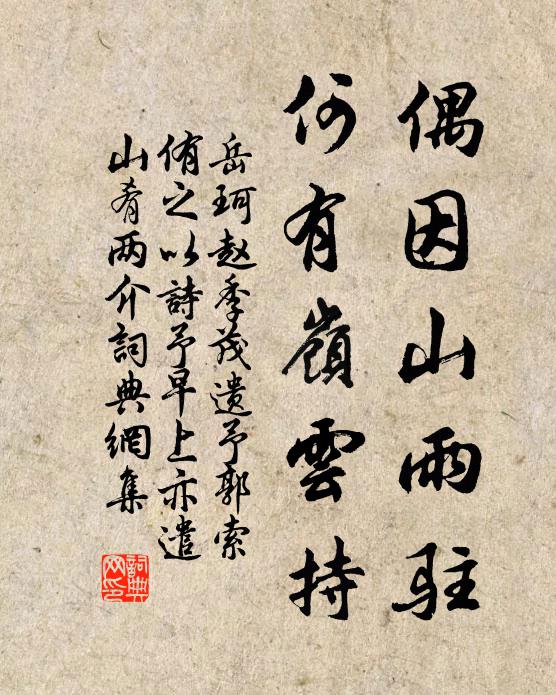 偶因山雨駐
何有嶺雲持
岳珂赵季茂遺予郭索
侑之以詩予早上亦遣
山肴两介詞典網集
詞典网印